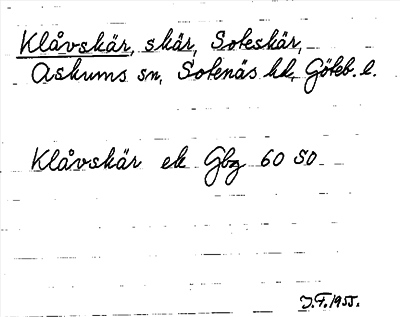 Klåvskär, skär, Soteskär,
Askums sn, Sotenäs hd, Göteb. l.
Klåvskär ek Gbg 60 SO
J.F. 1955.